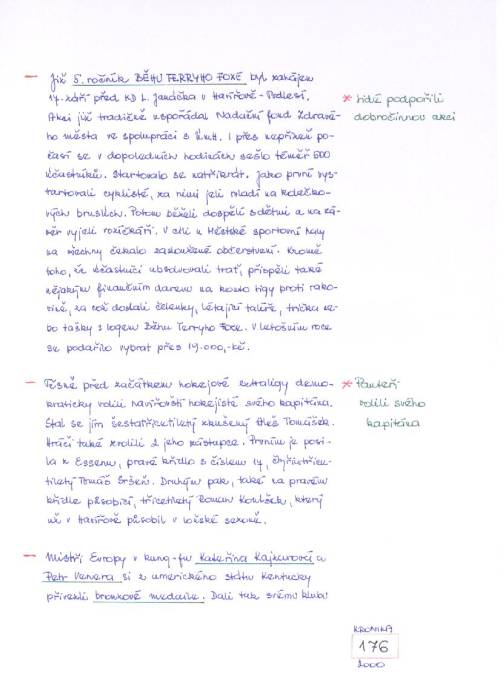 – Již 5. ročník BĚHU TERRYHO FOXE byl zahájen
14. září před KD L. Janáčka v Havířově-Podlesí.
Akci již tradičně uspořádal Nadační fond Zdravé-
ho města ve spolupráci s
I přes nepřízeň po-
časí se v dopoledních hodinách sešlo téměř 500
účastníků. Startovalo se natřikrát. Jako první vys-
tartovali cyklisté, za nimi jeli mladí na kolečko-
vých bruslích. Potom běželi dospělí s dětmi a na zá-
věr vyjeli vozíčkáři. V cíli u Městské sportovní haly
na všechny čekalo zasloužené občerstvení. Kromě
toho, že účastníci absolvovali trať, přispěli také
nějakým finančním darem na konto Ligy proti rako-
vině, za což dostali čelenky, létající talíře, trička ne-
bo tašky s logem Běhu Terryho Foxe. V letošním roce
se podařilo vybrat přes 19.000,-kč.
* Lidé podpořili
dobročinnou akci
– Těsně před začátkem hokejové extraligy demo-
kraticky volili havířovští hokejisté svého kapitána.
Stal se jím šestatřicetiletý zkušený Aleš Tomášek.
Hráči také zvolili 2 jeho zástupce. Prvním je posi-
la z Essenu, pravé křídlo s číslem 14, čtyřiatřice-
tiletý Tomáš Sršeň. Druhým pak, také na pravém
křídle působící, třicetiletý Roman
který
už v Havířově působil v loňské sezoně.
* Panteři
volili svého
kapitána
– Mistři Evropy v kung-fu Kateřina Kajzurová a
Petr Venera si z amerického státu Kentucky
přivezli bronzové medaile. Dali tak svému klubu
KRONIKA
176
2000